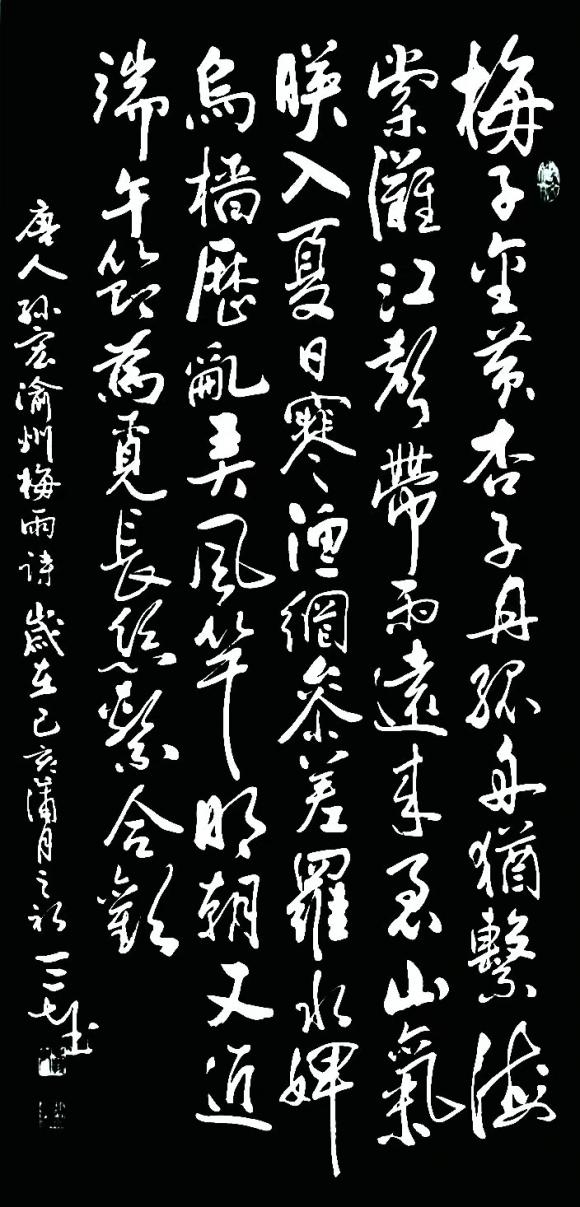 梅子金黃杏子丹孤舟猶繫海
棠灘江聲帶雨遠來急山氣
暎入夏日寒漁網參差羅水婢
烏檣歷亂弄風竿明朝又近
端午節為覓長絲繫合歡
唐人孫宏渝州梅雨詩 歲在己亥蒲月之初